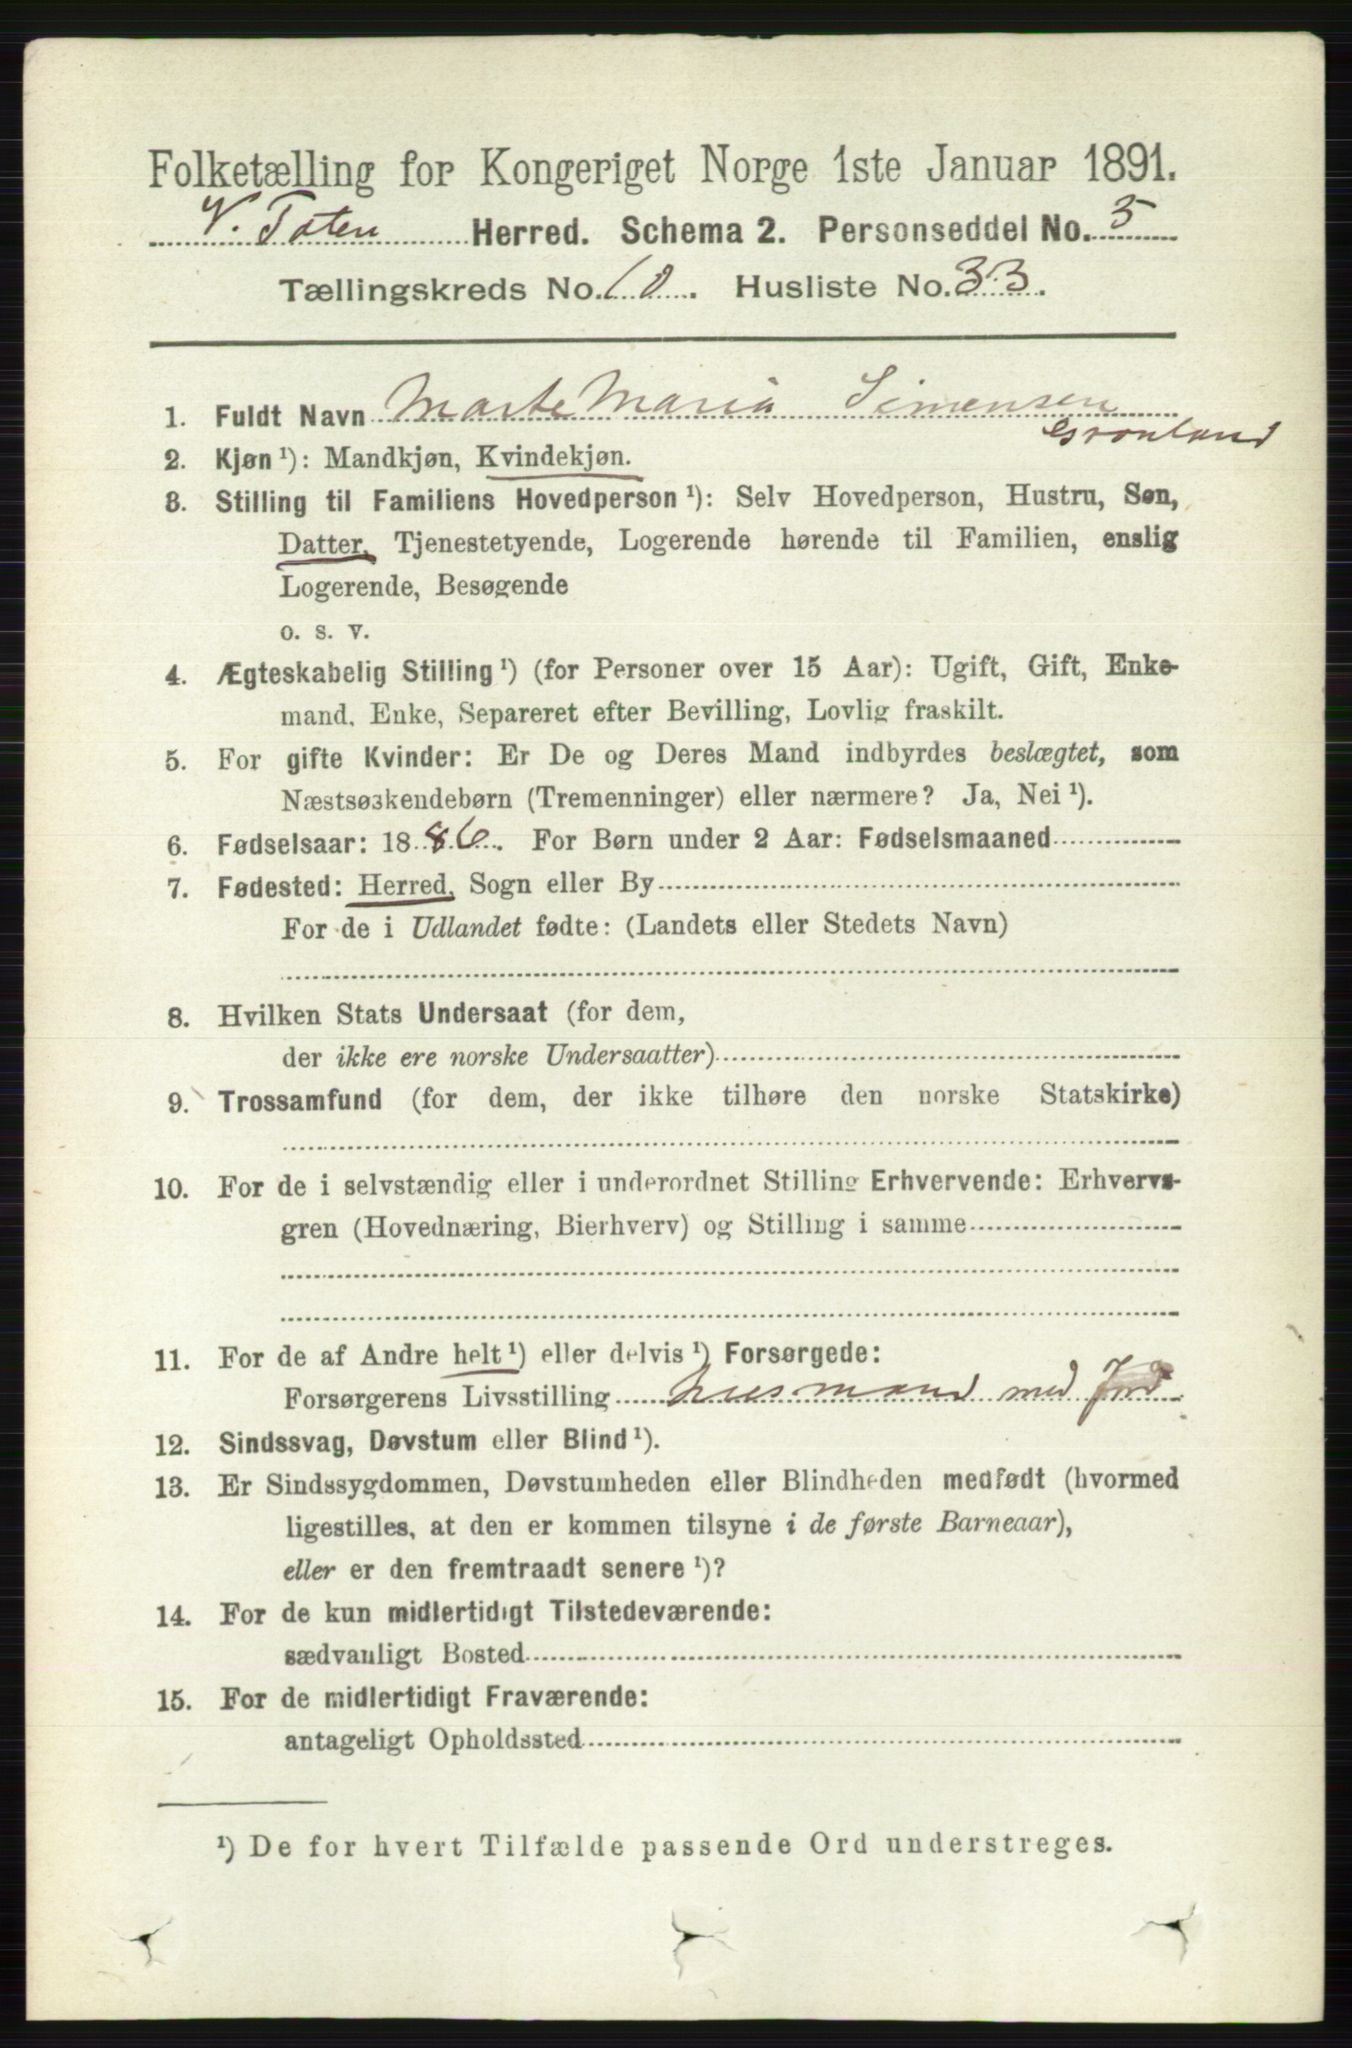 Folketælling for Kongeriget Norge 1ste Januar 1891.
V. Toten Herred. Schema 2. Personseddel No. 5
Tællingskreds No. 10. Husliste No. 33.
1. Fuldt Navn Marte Maria Simensen
Grønland
2. Kjøn ¹): Mandkjøn, Kvindekjøn.
3. Stilling til Familiens Hovedperson ¹): Selv Hovedperson, Hustru, Søn,
Datter, Tjenestetyende, Logerende hørende til Familien, enslig
Logerende, Besøgende
o. s. v.
4. Ægteskabelig Stilling ¹) (for Personer over 15 Aar): Ugift, Gift, Enke-
mand, Enke, Separeret efter Bevilling, Lovlig fraskilt.
5. For gifte Kvinder: Er De og Deres Mand indbyrdes beslægtet, som
Næstsøskendebørn (Tremenninger) eller nærmere? Ja, Nei ¹).
6. Fødselsaar: 1886. For Børn under 2 Aar: Fødselsmaaned
7. Fødested: Herred, Sogn eller By
For de i Udlandet fødte: (Landets eller Stedets Navn)
8. Hvilken Stats Undersaat (for dem,
der ikke ere norske Undersaatter)
9. Trossamfund (for dem, der ikke tilhøre den norske Statskirke)
10. For de i selvstændig eller i underordnet Stilling Erhvervende: Erhvervs-
gren (Hovednæring, Bierhverv) og Stilling i samme
11. For de af Andre helt ¹) eller delvis ¹) Forsørgede:
Forsørgerens Livsstilling Husmand med Jord
12. Sindssvag, Døvstum eller Blind ¹).
13. Er Sindssygdommen, Døvstumheden eller Blindheden medfødt (hvormed
ligestilles, at den er kommen tilsyne i de første Barneaar),
eller er den fremtraadt senere ¹)?
14. For de kun midlertidigt Tilstedeværende:
sædvanligt Bosted
15. For de midlertidigt Fraværende:
antageligt Opholdssted
¹) De for hvert Tilfælde passende Ord understreges.